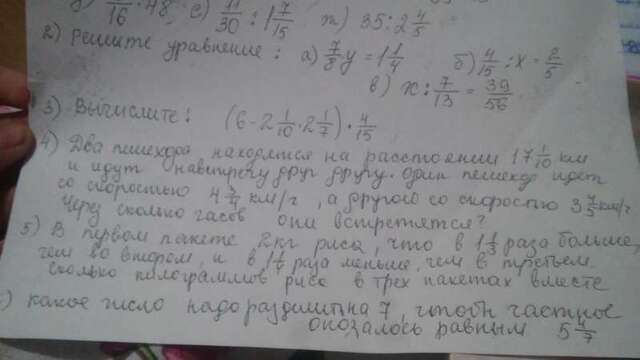 /16 · 48 е) 11/30 : 1 7/15 ж) 35 : 2 4/5
2) Решите уравнение : а) 7/8 y = 1 1/4 б) 4/15 : x = 2/5
в) x : 7/13 = 39/56
3) Вычислите : (6 - 2 1/10 · 2 1/7) · 4/15
4) Два пешехода находятся на расстоянии 17 1/10 км
и идут навстречу друг другу. Один пешеход идет
со скоростью км/г, а другого со скоростью км/г
Через сколько часов они встретятся?
5) В первом пакете 2кг риса, что в 1 1/3 раза больше,
чем во втором, и в раза меньше, чем в третьем.
Сколько килограммов риса в трех пакетах вместе
) какое число надо разделить на 7, чтобы частное
оказалось равным 5 4/7